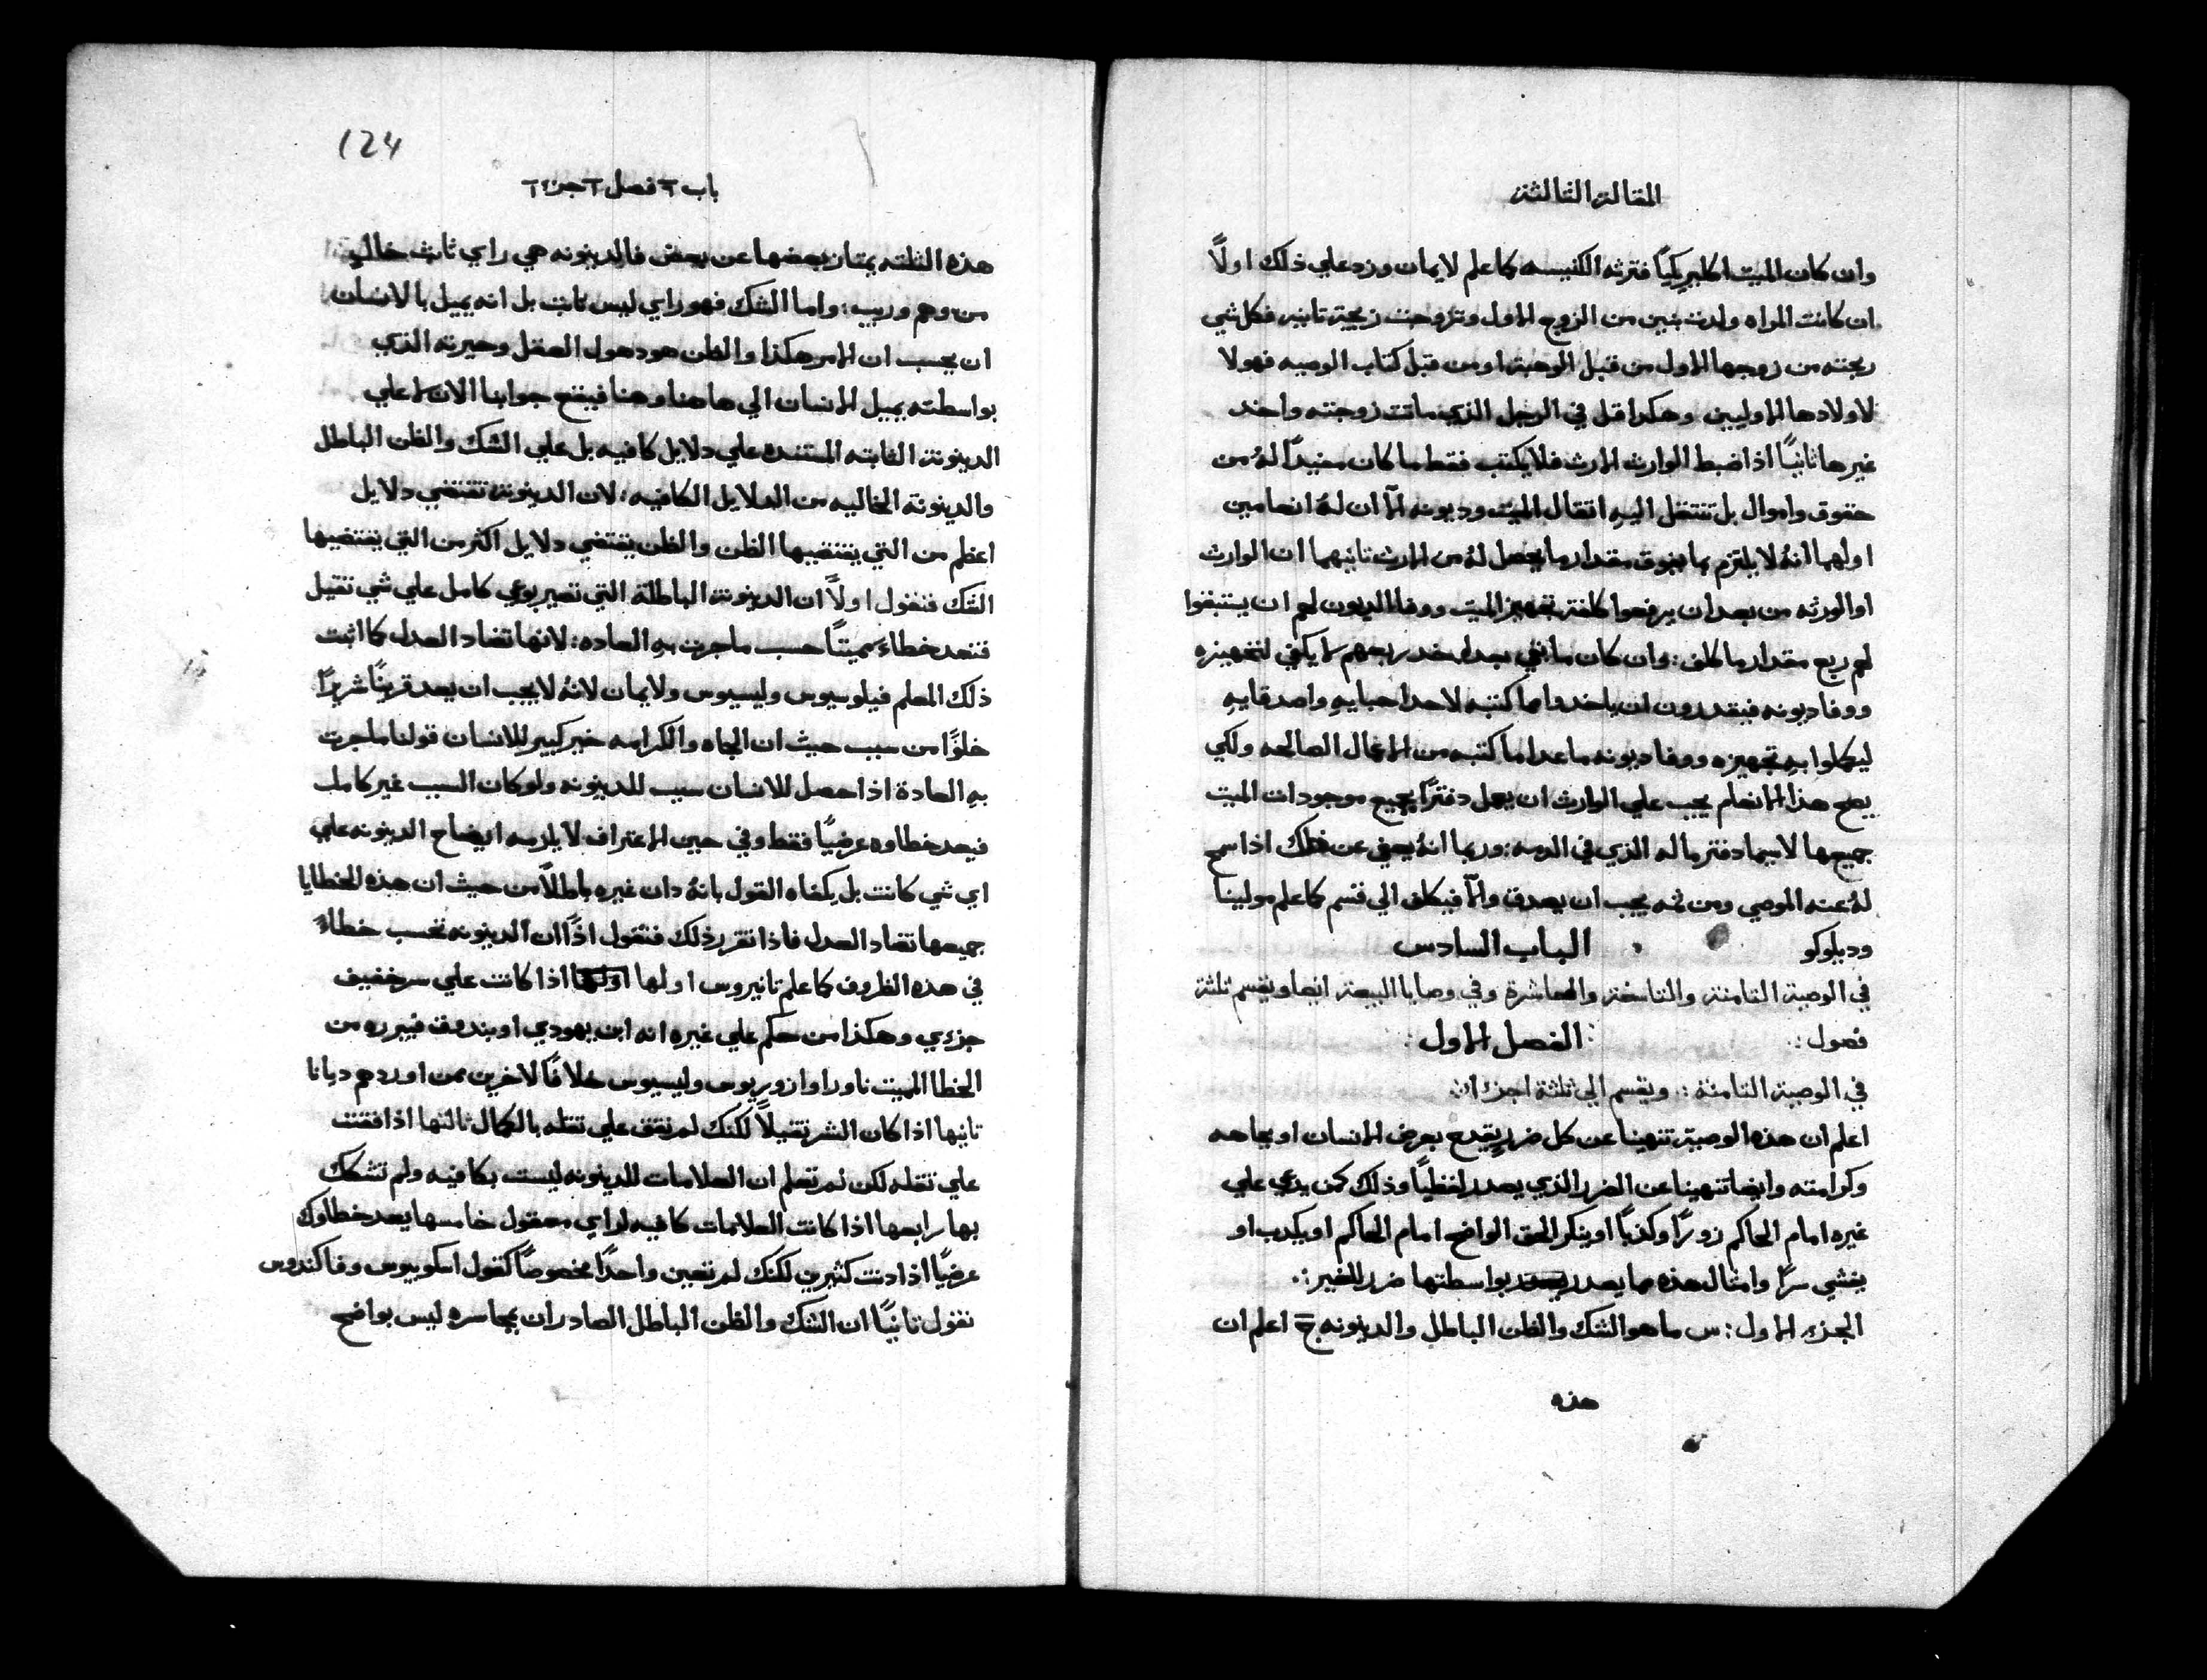 المقالة الثالثة
وان كان الميت اكليريكيًا فترثه الكنيسه كما علم لايمان وزد علي ذلك اولًا
ان كانت المراه ولدت بنين من الزوج الاول وتزوجت زيجة تانيه فكل شي
ربحته من زوجها الاول من قبل الوهبة او من قبل كتاب الوصيه فهولا
لاولادها الاوليين وهكدا قل في الرجل الذي ماتت زوجته واخد
غيرها تانيًا اذا ضبط الوارث الارث فلا يكتب فقط ما كان مفيدًا لهُ من
حقوق واموال بل تنتقل اليهِ اتقال الميت وديونه الآ ان لهُ انعامين
اولهما انهُ لا يلتزم بما يفوق مقدار ما يحصل لهُ من الارث تانيهما ان الوارث
او الورثه من بعد ان يرفعوا كلفة تجهيز الميت ووفا الديون لهم ان يستبقوا
لهم ربع مقدار ما كلف: وان كان ما بقي بعد اخد ربعهم لا يكفي لتجهيزه
ووفا ديونه فيقدرون ان ياخدوا مما كتبه لاحد احبايهِ واصدقايهِ
ليكملوا بهِ تجهيزه ووفا ديونه ما عدا ما كتبه من الاعمال الصالحه ولكي
يصح هذا الانعام يجب علي الوارث ان يعمل دفترًا بجميع موجودات الميت
جميعها لاسيما دفتر ماله الذي في الدمه: وربما انهُ يعفي عن ذلك اذا سمح
لهُ عنه الموصي ومن ثمه يجب ان يصدق والآ فيكلف الي قسم كما علم مولينا
وديلوكو الباب السادس
في الوصية التامنة والتاسعة والعاشرة وفي وصايا البيعة ايضا ويقسم ثلثة
فصول:. : الفصل الاول :
في الوصية التامنة :. ويقسم الي ثلثة اجزاء:.
اعلم ان هذه الوصية تنهينا عن كل ضررٍ يقدح بعرض الانسان او بجاهه
وكرامته وايضا تنهينا عن الضرر الذي يصدر لفظيًا وذلك كمن يدعي علي
غيره امام الحاكم زورًا وكذبًا او ينكر الحق الواضح امام الحاكم او يكدب او
يفشي سرًا وامثال هذه مما يصدر بواسطتها ضرر للغير:.
الجزء الاول: س ما هو الشك والظن الباطل والدينونه ج اعلم ان
هذه
124
باب ٦ فصل ١ جزء ١
هذه الثلثه يمتاز بعضها عن بعض فالدينونه هي راي ثابث خالٍ
من وهم وريب: واما الشك فهو راي ليس ثابت بل انه يميل بالانسان
ان يحسب ان الامر هكذا والظن هو دهول العقل وحيرته الذي
بواسطته يميل الانسان الي ها هنا وهنا فيقع جوابنا الان لا علي
الدينونة الثابته المستنده علي دلايل كافيه بل علي الشك والظن الباطل
والدينونة الخاليه من الدلايل الكافيه: لان الدينونة تقتضي دلايل
اعظم من التي يقتضيها الظن والظن يقتضي دلايل اكثر من التي يقتضيها
الشك فنقول اولًا ان الدينونة الباطلة التي تصير بوعي كامل علي شي ثقيل
فتعد خطاءً مميتًا حسب ما جرت بهِ العاده: لانها تضاد العدل كما اثبت
ذلك المعلم فيلوسيوس وليسيوس ولايمان لانهُ لا يجب ان يعد قريبنًا شريرًا
خلوًا من سبب حيث ان الجاه والكرامه خير كبير للانسان قولنا ما جرت
بهِ العادة اذا حصل للانسان سبب للدينونه ولو كان السبب غير كامل
فيعد خطاوه عرضيًا فقط وفي حين الاعتراف لا يلزمه ايضاح الدينونه علي
اي شي كانت بل يكفاه القول بانهُ دان غيره باطلًا من حيث ان هذه الخطايا
جميعها تضاد العدل فاذا تقرر ذلك فنقول اذًا ان الدينونه تحسب خطاءً
في هذه الظروف كما علم تانيروس اولها اذا كانت علي سر خفيف
جزءي وهكذا من حكم علي غيره انه ابن يهودي او بندوق فيبرره من
الخطا المميت ناورا وازوريوس وليسيوس خلافًا لاخرين ممن اوردهم ديانا
تانيها اذا كان الشر ثقيلًا لكنك لم تقف علي ثقله بالكمال ثالثها اذا فقت
علي ثقله لكن لم تعلم ان العلامات للدينونه ليست بكافيه ولم تشكك
بها رابعها اذا كانت العلامات كافيه لراي معقول خامسها يعد خطاوك
عرضيًا اذا دنت كثيرين لكنك لم تعين واحدًا مخصوصًا كقول اسكوبيوس وفاكندوس
نقول تانيًا ان الشك والظن الباطل الصادران بمجاسره ليس بواضح